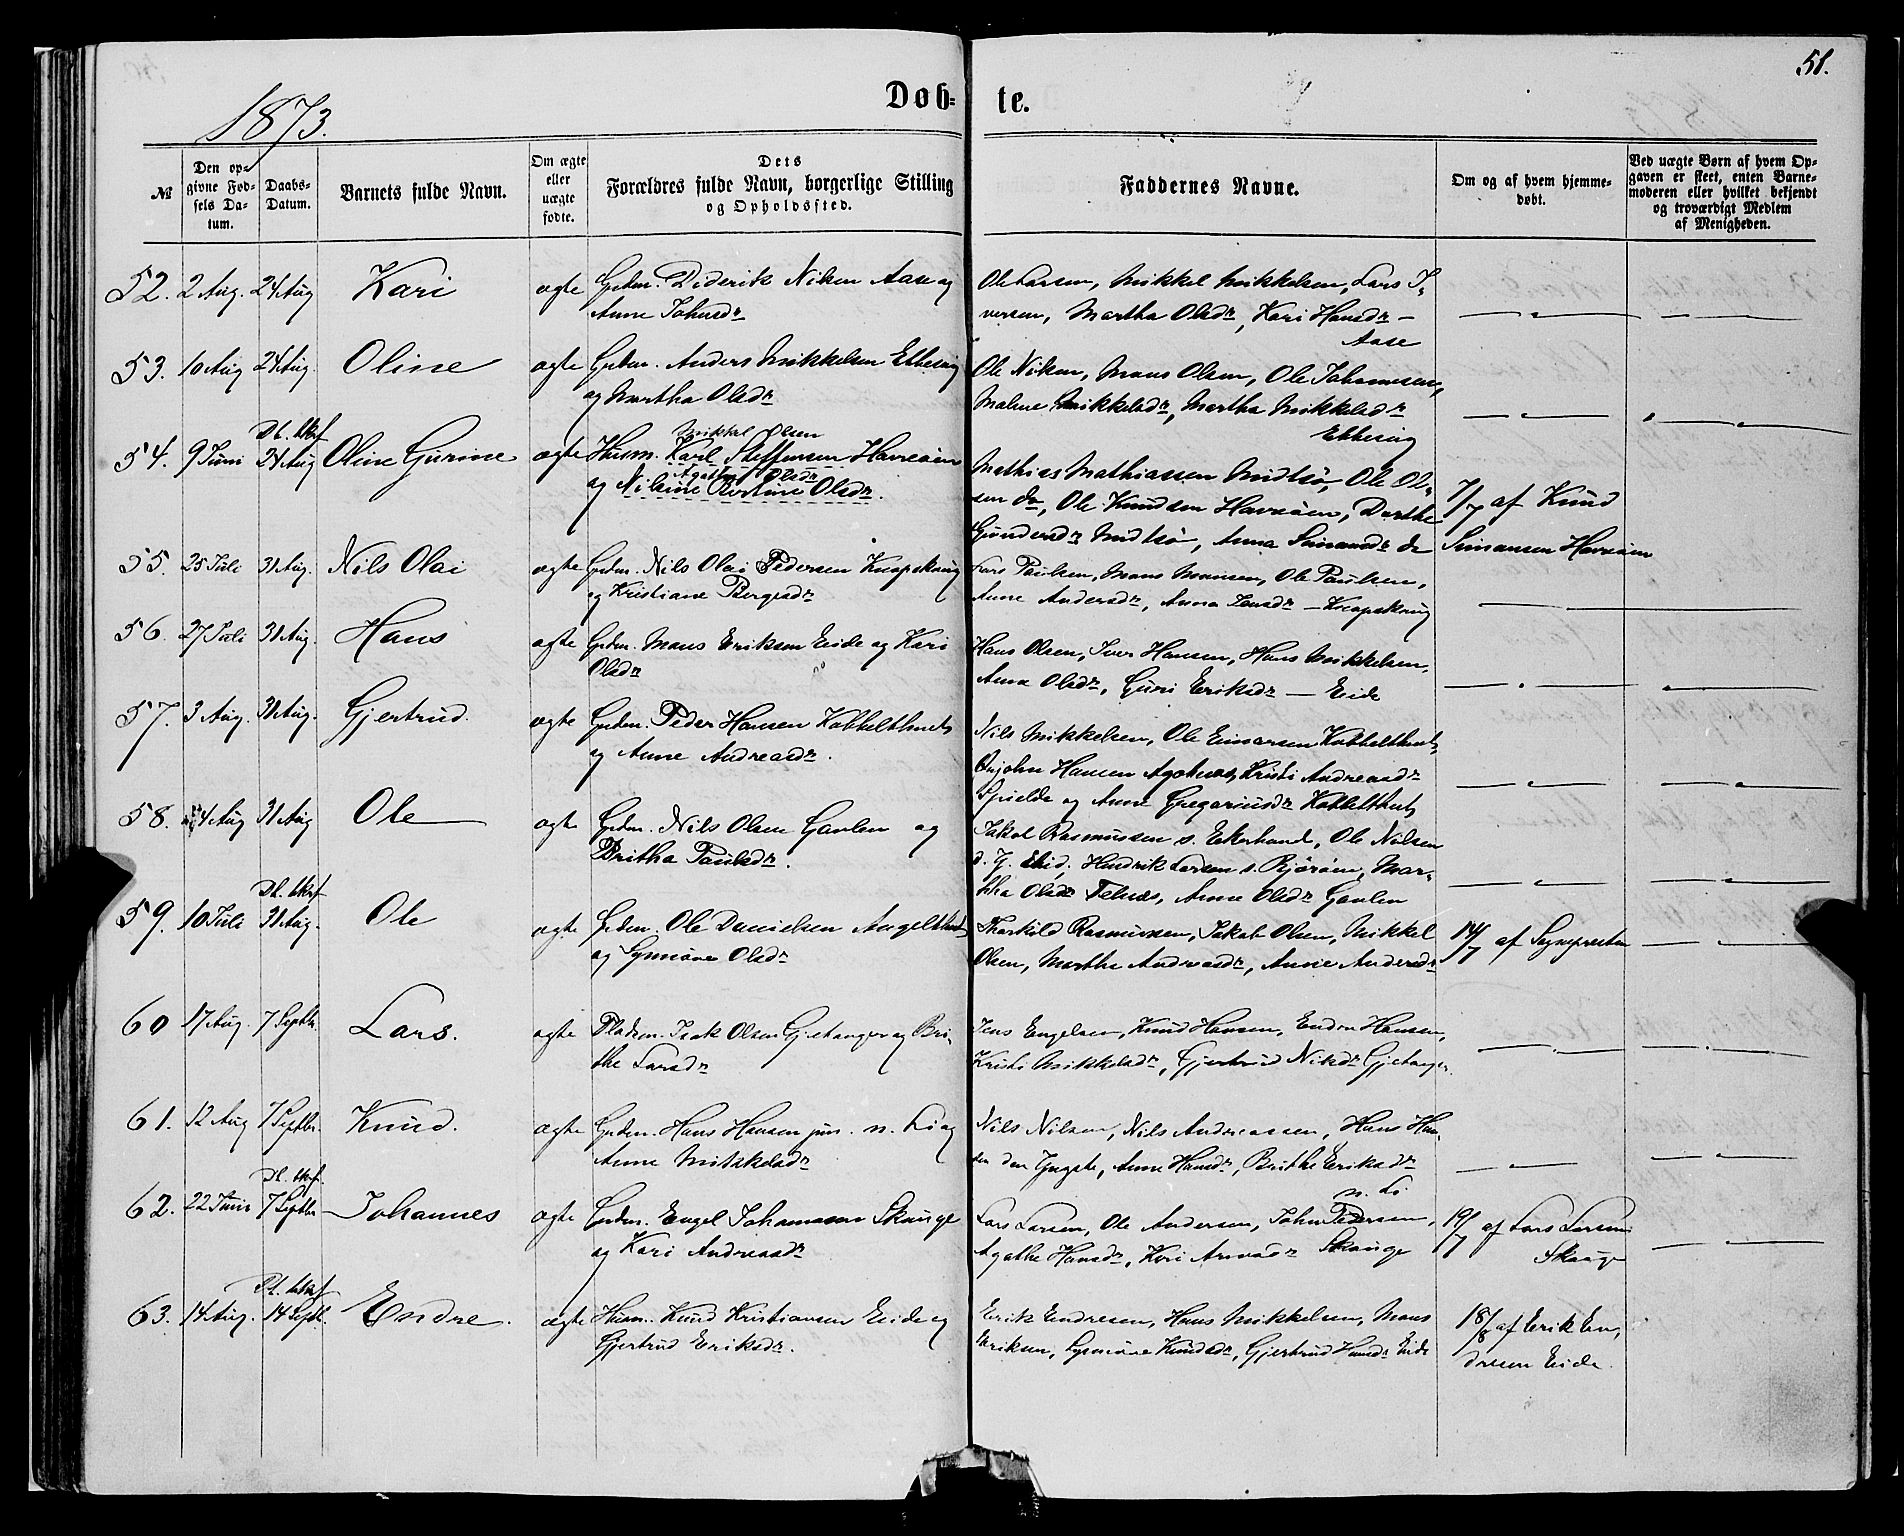 51.
1873.
Døb- te.
№
Den op-
givne Fød-
sels Da-
tum.
Daabs-
Datum.
Barnets fulde Navn.
Om ægte
eller
uægte
fødte.
Dets
Forældres fulde Navn, borgerlige Stilling
og Opholdssted.
Faddernes Navne.
Om og af hvem hjemme-
døbt.
Ved uægte Børn af hvem Op-
gaven er skeet, enten Barne-
moderen eller hvilket bekjendt
og troværdigt Medlem
af Menigheden.
52. 2 Aug. 24 Aug Kari ægte Grdm. Diderik Nilsen Aase og
Anne Johnsdr
Ole Larsen, Mikkel Mikkelsen, Lars I-
versen, Martha Olsdr, Kari Hansdr –
Aase
53. 10 Aug 24 Aug. Oline ægte Grdm. Anders Mikkelsen
og Martha Olsdr
Ole Nilsen, Mons Olsen, Ole Johannesen,
Malene Mikkelsdr, Martha Mikkelsdr
54. 9 Juni 24 Aug Oline Gurine ægte Husm. Karl Steffensen Havreøien
Mikkel Olsen
og Nilsine Bertine Olsdr.
Agathe Olsdr
Mathias Mathiassen Midtsø, Ole Ol-
sen do, Ole Knudsen Havreøien, Dorthe
Gundersdr Midtsø, Anna Simonsdr do
7/7 af Knud
Simonsen Havreøien
55. 25 Juli 31 Aug. Nils Olai ægte Grdm. Nils Olai Pedersen Knapskoug
og Kristiane Børgesdr
Lars Paulsen, Mons Monsen, Ole Paulsen,
Anne Andersdr, Anna Jonsdr – Knapskoug
56. 27 Juli 31 Aug. Hans ægte Grdm. Mons Eriksen Eide og Kari
Olsdr
Hans Olsen, Iver Hansen, Hans Mikkelsen,
Anna Olsdr, Guri Eriksdr – Eide
57. 3 Aug. 31 Aug. Gjertrud. ægte Grdm. Peder Hansen Kobbelthvet
og Anne Andreasdr.
Nils Mikkelsen, Ole Einarsen Kobbelthvet,
Hansen Kristi Andreasdr
Spielde og Anne Gregoriusdr Kobbelthvet
58. 4 Aug 31 Aug Ole ægte Grdm. Nils Olsen Gaulen og
Britha Paulsdr.
Jakob Rasmussen s. Ekerhovd, Ole Nilsen
Hendrik Larsen s. Bjørøen, Mar-
tha Olsdr Telnæs, Anne Olsdr Gaulen
59. 10 Juli 31 Aug. Ole ægte Grdm. Ole Danielsen Angelthvet
og Synnøve Olsdr
Thorkild Rasmussen, Jakob Olsen, Mikkel
Olsen, Marthe Andreasdr, Anne Andersdr
14/7 af Sognepresten
60 17 Aug. 7 Septbr. Lars. ægte Pladsm. Isak Olsen Gjetanger og Bri-
the Larsdr
Jens Engelsen, Knud Hansen, Endre Hansen,
Kristi Mikkelsdr, Gjertrud Nilsdr Gjetanger.
61. 12 Aug 7 Septbr. Knud. ægte Grdm. Hans Hansen jun. n. Li og
Anne Mikkelsdr
Nils Nilsen, Nils Andreassen, Hans Han-
sen den Yngste, Anne Hansdr, Brithe Eriksdr
n. Li
62. 22 Juni 7 Septbr Johannes ægte Grdm. Engel Johannesen Skauge
og Kari Andreasdr
Lars Larsen, Ole Andersen, John Pedersen,
Agathe Hansdr, Kari Skauge
19/7 af Lars Larsen
Skauge
63. 14 Aug. 14 Septb. Endre. ægte Husm. Knud Kristiansen Eide og
Gjertrud Eriksdr.
Erik Endresen, Hans Mikkelsen, Mons
Eriksen, Synnøve Knudsdr, Gjertrud Hansdr Eide
18/8 af Erik En-
dresen Eide.